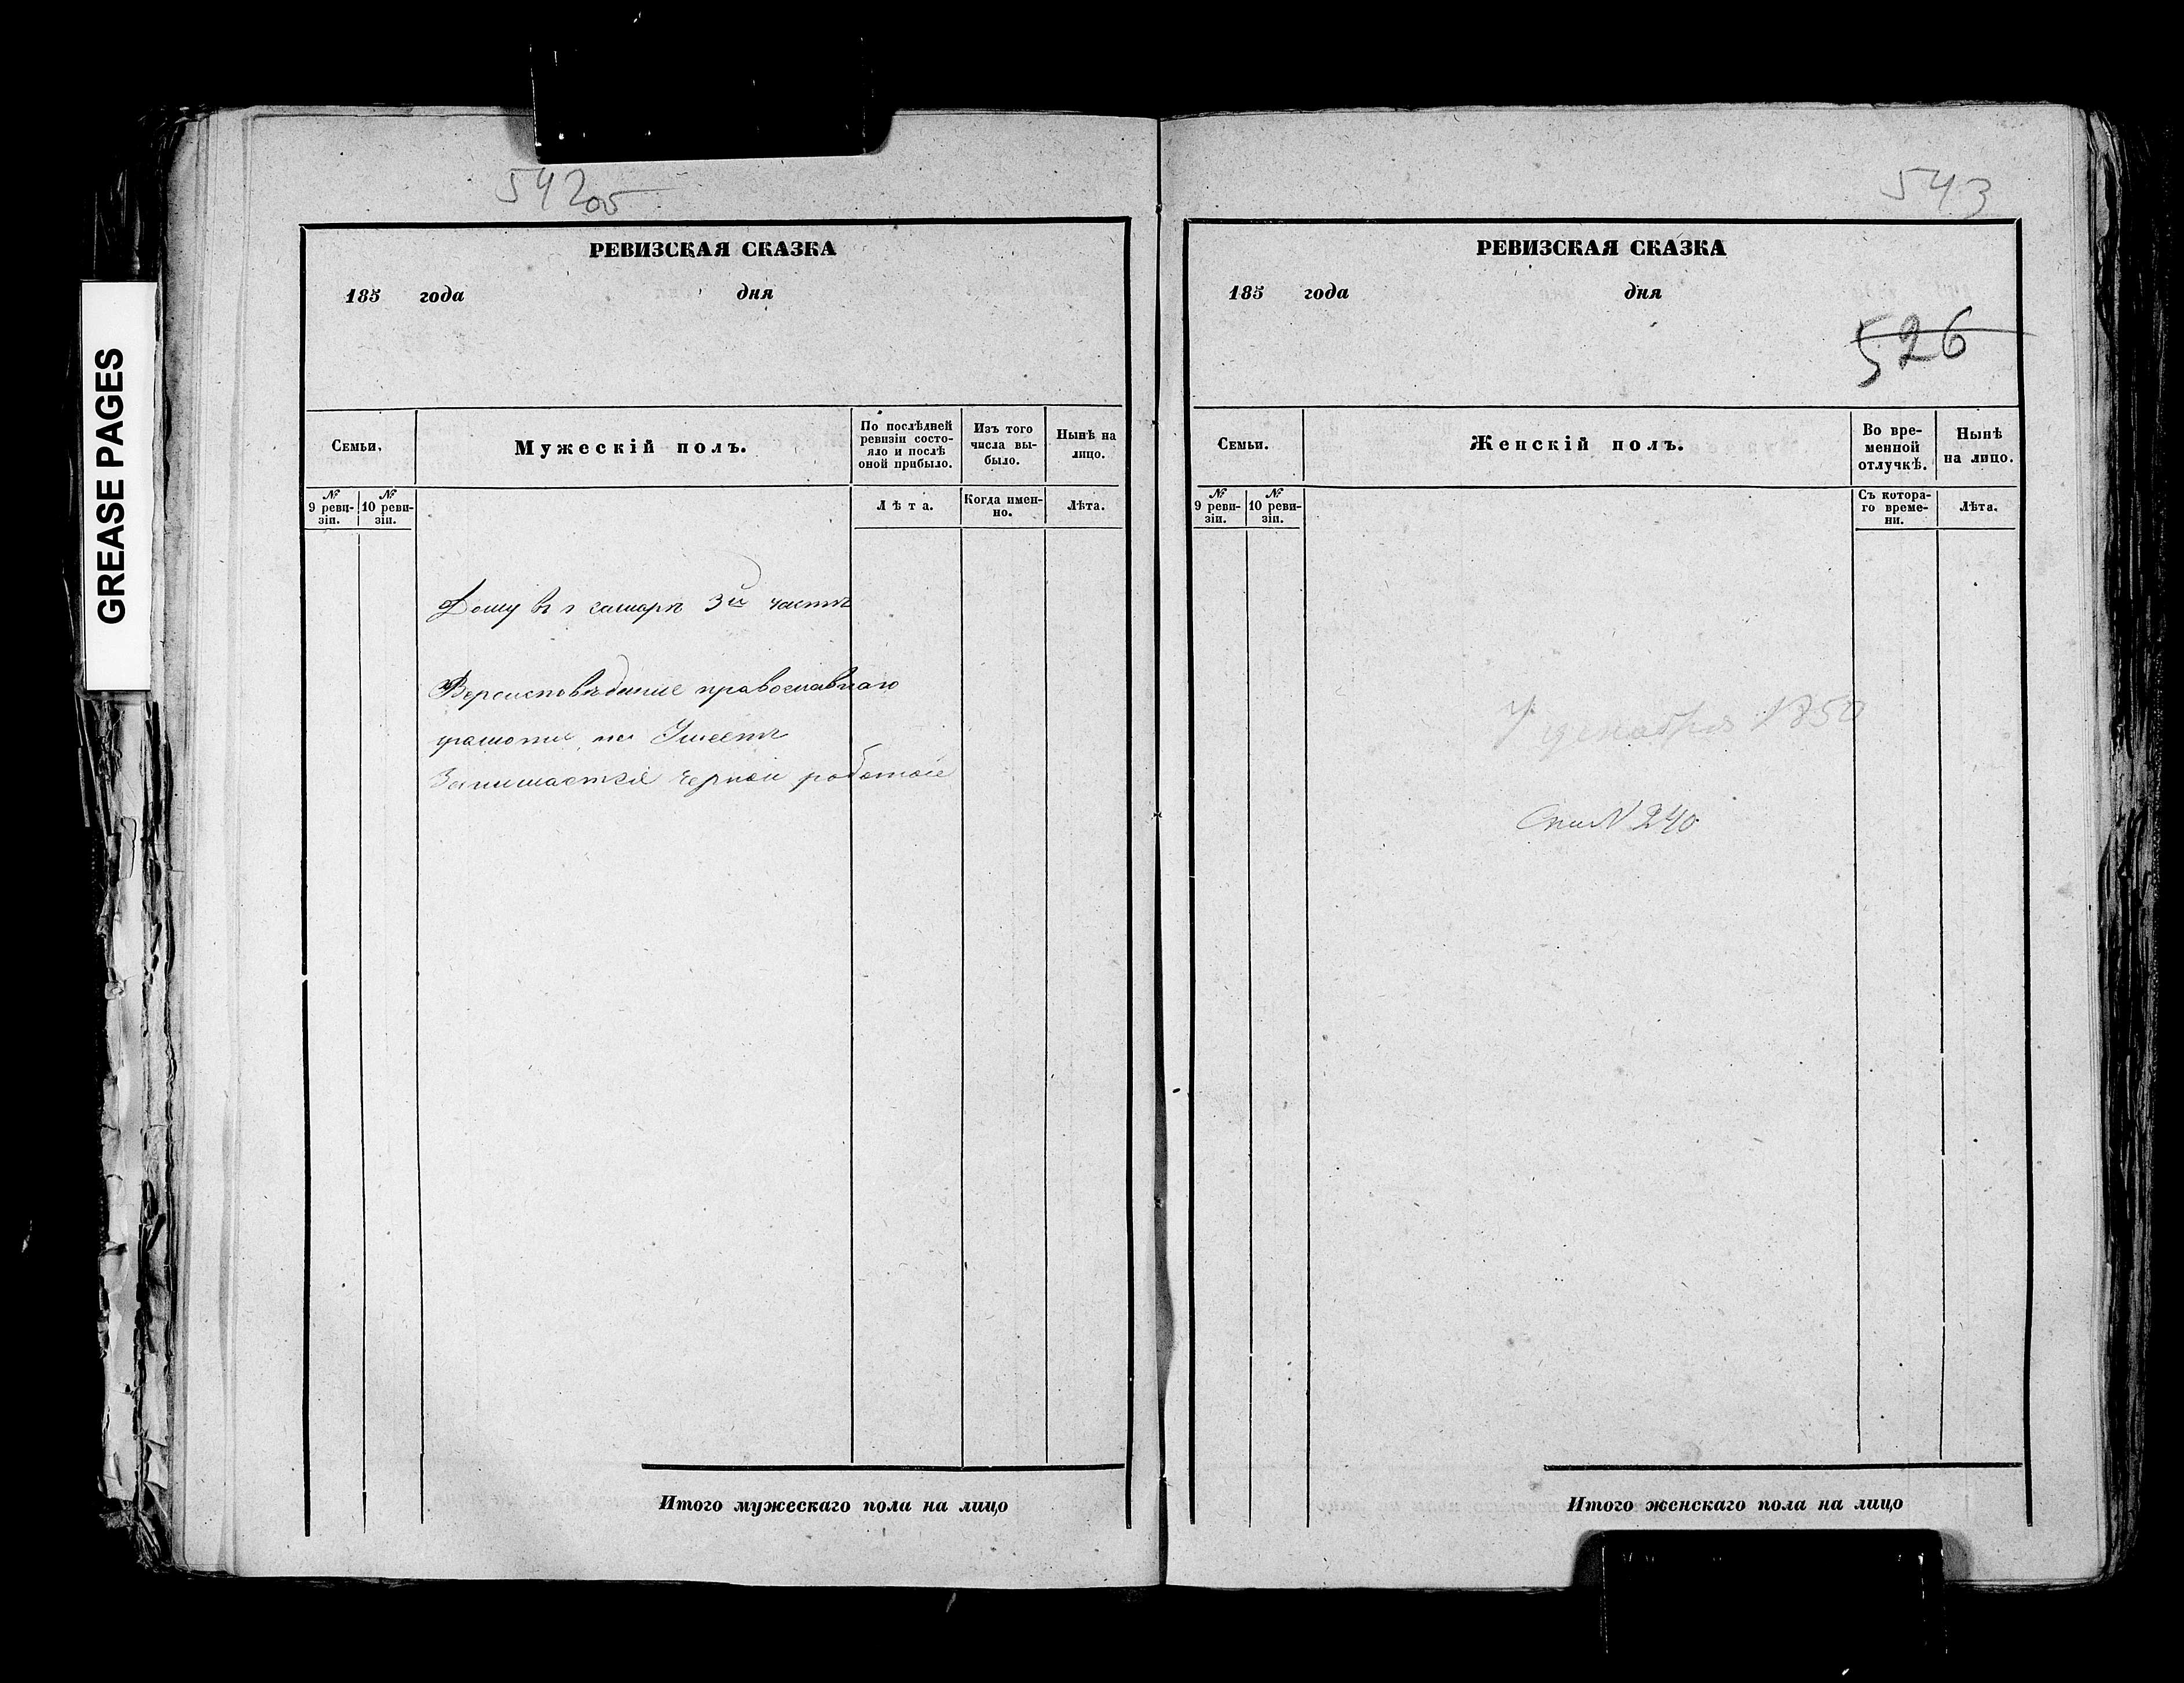 GREASE PAGES
542об
РЕВИЗСКАЯ СКАЗКА
185 года дня
Семьи.
Мужескій полъ.
По послѣдней
ревизіи состо-
яло и послѣ
оной прибыло.
Изъ того
числа вы-
было.
Нынѣ на
лицо.
№
9 реви-
зіи.
№
10 реви-
зіи.
Лѣта.
Когда имен-
но.
Лѣта.
Дому въ г самаре 3й части
Вероисповѣдание православнаго
грамоты не Умеетъ
Занимается черной работой
Итого мужескаго пола на лицо
543
РЕВИЗСКАЯ СКАЗКА
185 года дня
526
Семьи.
Женскій полъ.
Во вре-
менной
отлучкѣ.
Нынѣ
на лицо.
№
9 реви-
зіи.
№
10 реви-
зіи.
Съ котора-
го време-
ни.
Лѣта.
7 декабря 1850
N 240
Итого женскаго пола на лицо